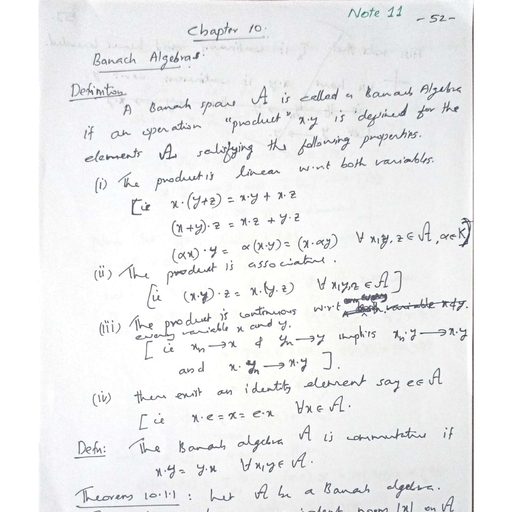 Note 11 - 52 -
Chapter 10.
Banach Algebras.
Definition
A Banach space A is called a Banach Algebra
if an operation "product" x.y is defined for the
elements A satisfying the following properties.
(i) The product is linear w.r.t both variables.
[ie x.(y+z) = x.y + x.z
(x+y).z = x.z + y.z
(αx).y = α(x.y) = (x.αy) ∀ x,y,z ∈ A, α ∈ K]
(ii) The product is associative.
[ie (x.y).z = x.(y.z) ∀ x,y,z ∈ A]
(iii) The product is continuous w.r.t
every variable x and y.
[ie xₙ → x & yₙ → y implies xₙ.y → x.y
and x.yₙ → x.y ].
(iv) there exist an identity element say e ∈ A
[ie x.e = x = e.x ∀ x ∈ A.
Defn: The Banach algebra A is commutative if
x.y = y.x ∀ x,y ∈ A.
Theorem 10.1.1 : Let A be a Banach algebra.
norm |x| on A